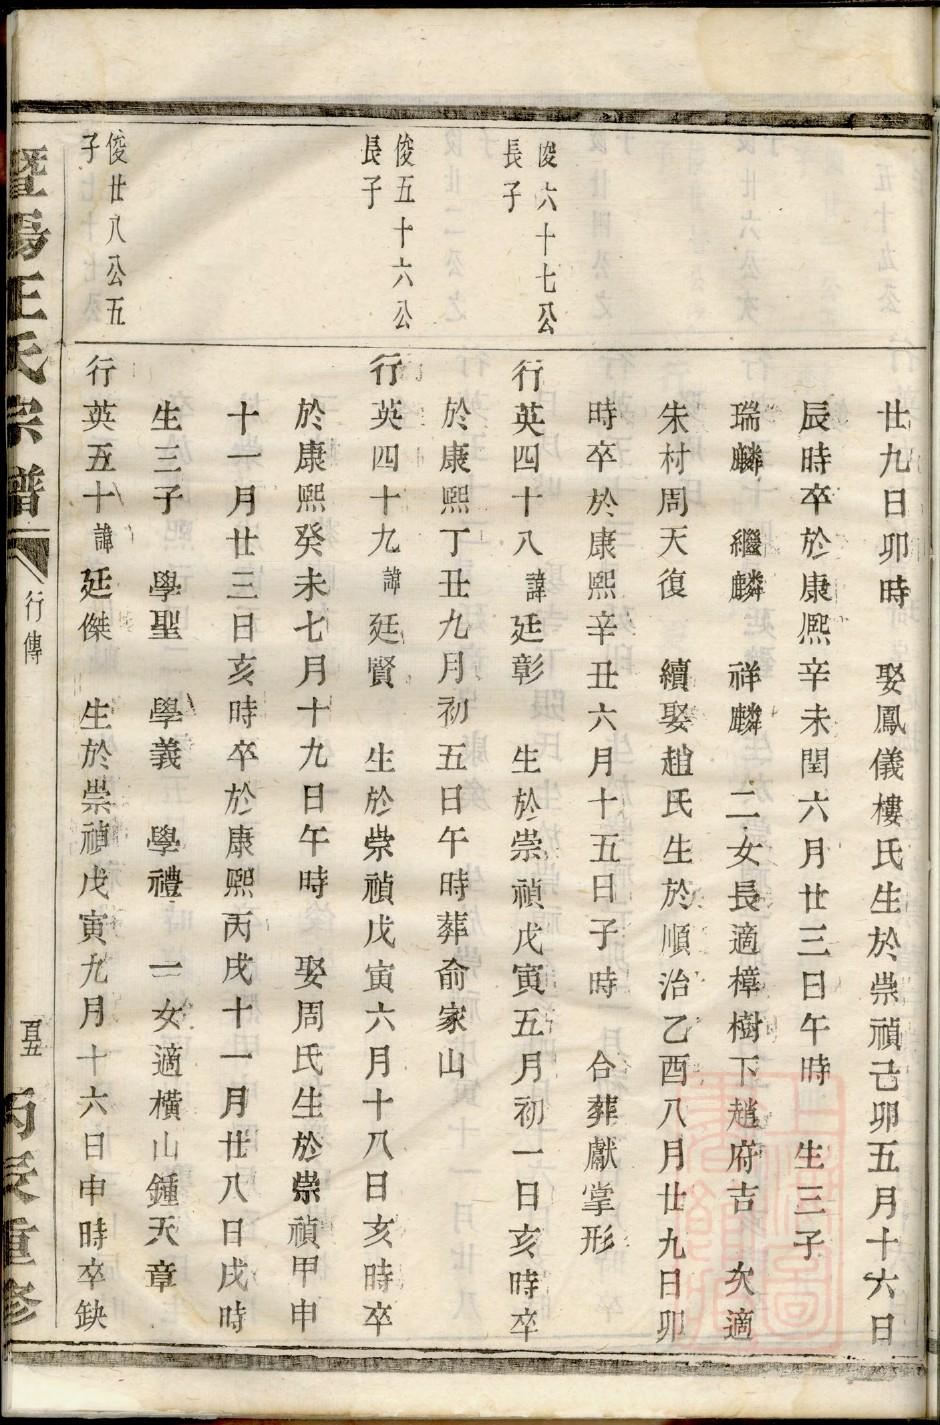 廿九日卯時　娶鳳儀樓氏生於崇禎己卯五月十六日
辰時卒於康熙辛未閏六月廿三日午時　生三子
瑞麟　繼麟　祥麟　二女長適樟樹下趙府吉　次適
朱村周天復　續娶趙氏生於順治乙酉八月廿九日卯
時卒於康熙辛丑六月十五日子時　合葬獻掌形
俊六十七公
長子
行英四十八諱廷彰　生於崇禎戊寅五月初一日亥時卒
於康熙丁丑九月初五日午時葬俞家山
俊五十六公
長子
行英四十九諱廷賢　生於崇禎戊寅六月十八日亥時卒
於康熙癸未七月十九日午時　娶周氏生於崇禎甲申
十一月廿三日亥時卒於康熙丙戌十一月廿八日戌時
生三子　學聖　學義　學禮　一女適橫山鍾天章
俊廿八公五
子
行英五十諱廷傑　生於崇禎戊寅九月十六日申時卒缺
暨陽王氏宗譜
行傳
丙辰重修